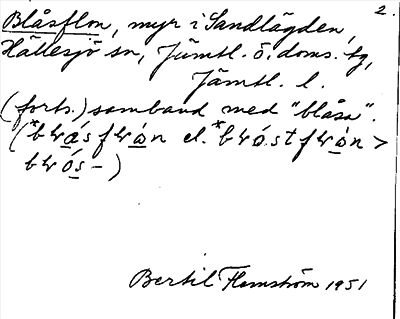 2.
Blåsflon, myr i Sandlägden,
Hällesjö sn, Jämtl. ö. doms. tg,
Jämtl. l.
(forts.) samband med "blåsa".
(*bɬǻsfɬòn el. *bɬó.stfɬòn >
bɬós-)
Bertil Flemström 1951